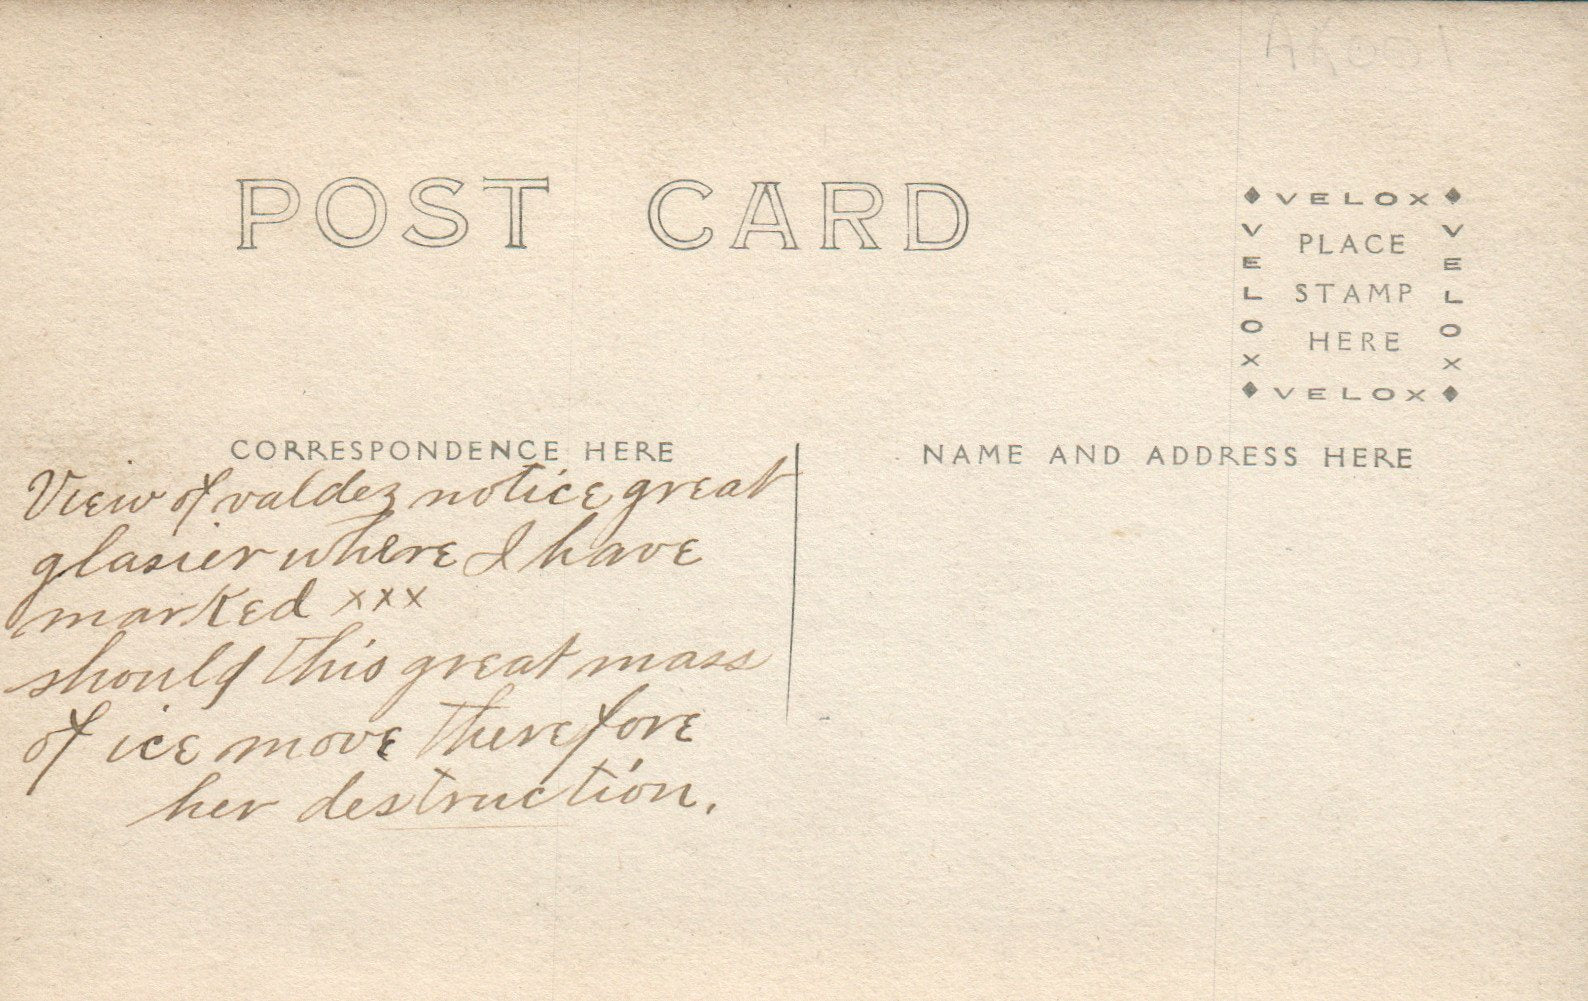 AK001
POST CARD
VELOX
VELOX
VELOX
PLACE
STAMP
HERE
VELOX
CORRESPONDENCE HERE
NAME AND ADDRESS HERE
View of valdez notice great
glasier where I have
marked xxx
should this great mass
of ice move therefore
her destruction.